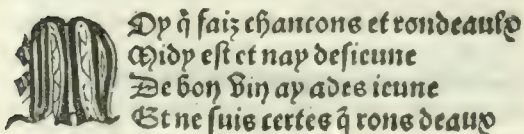 MOy q̃ faiz chancons et rondeaulx
Midy eſt et nay deſieune
De bon Vin ay ades ieune
Et ne ſuis certes q̃ rons deaux